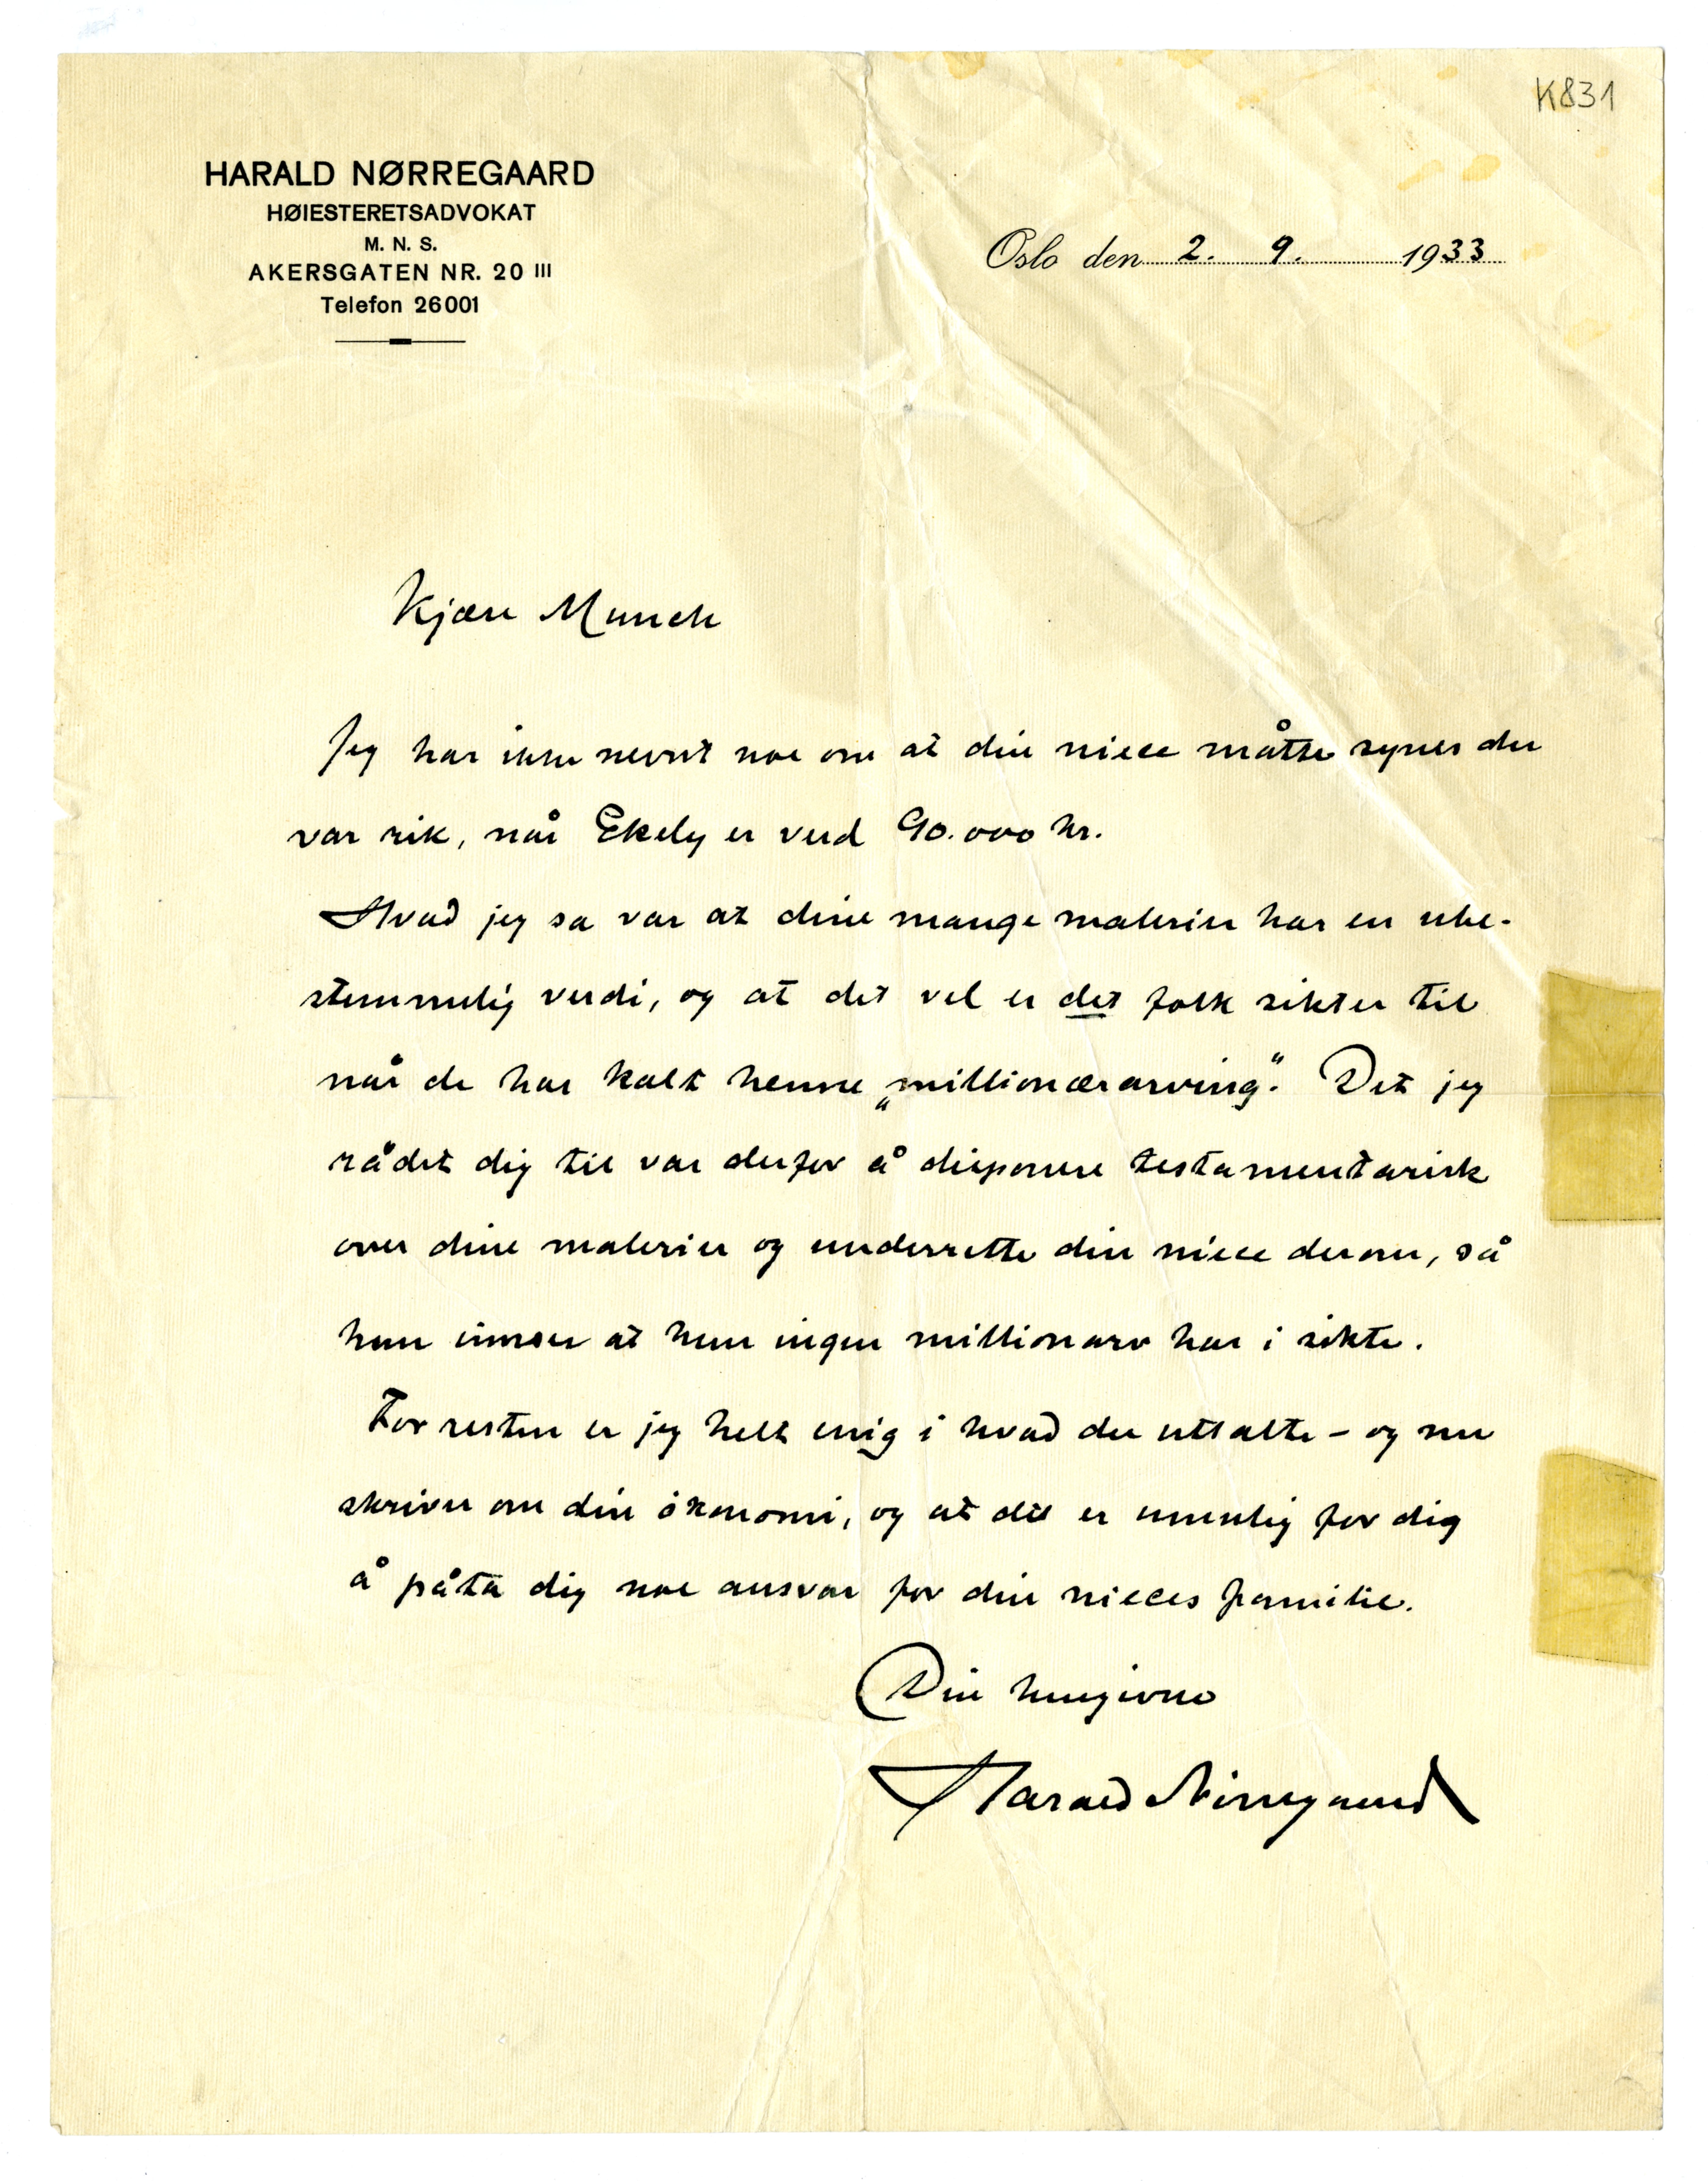 K831
HARALD NØRREGAARD
HØIESTERETSADVOKAT
M. N. S.
AKERSGATEN NR. 20 III
Telefon 26001
Oslo den 2. 9. 1933
Kjære Munch
Jeg har ikke nevnt noe om at din niece måtte synes du
var rik, når Ekely er verd 90.000 kr.
Hvad jeg sa var at dine mange malerier har en ube-
stemmelig verdi, og at det vel er det folk sikter til
når de har kalt henne „millionærarving“. Det jeg
rådet dig til var derfor å disponere testamentarisk
over dine malerier og underrette din niece derom, så
hun innser at hun ingen millionarv har i sikte.
For resten er jeg helt enig i hvad du uttalte – og nu
skriver om din økonomi, og at det er umulig for dig
å påta dig noe ansvar for din nieces familie.
Din hengivne
Harald Nørregaard